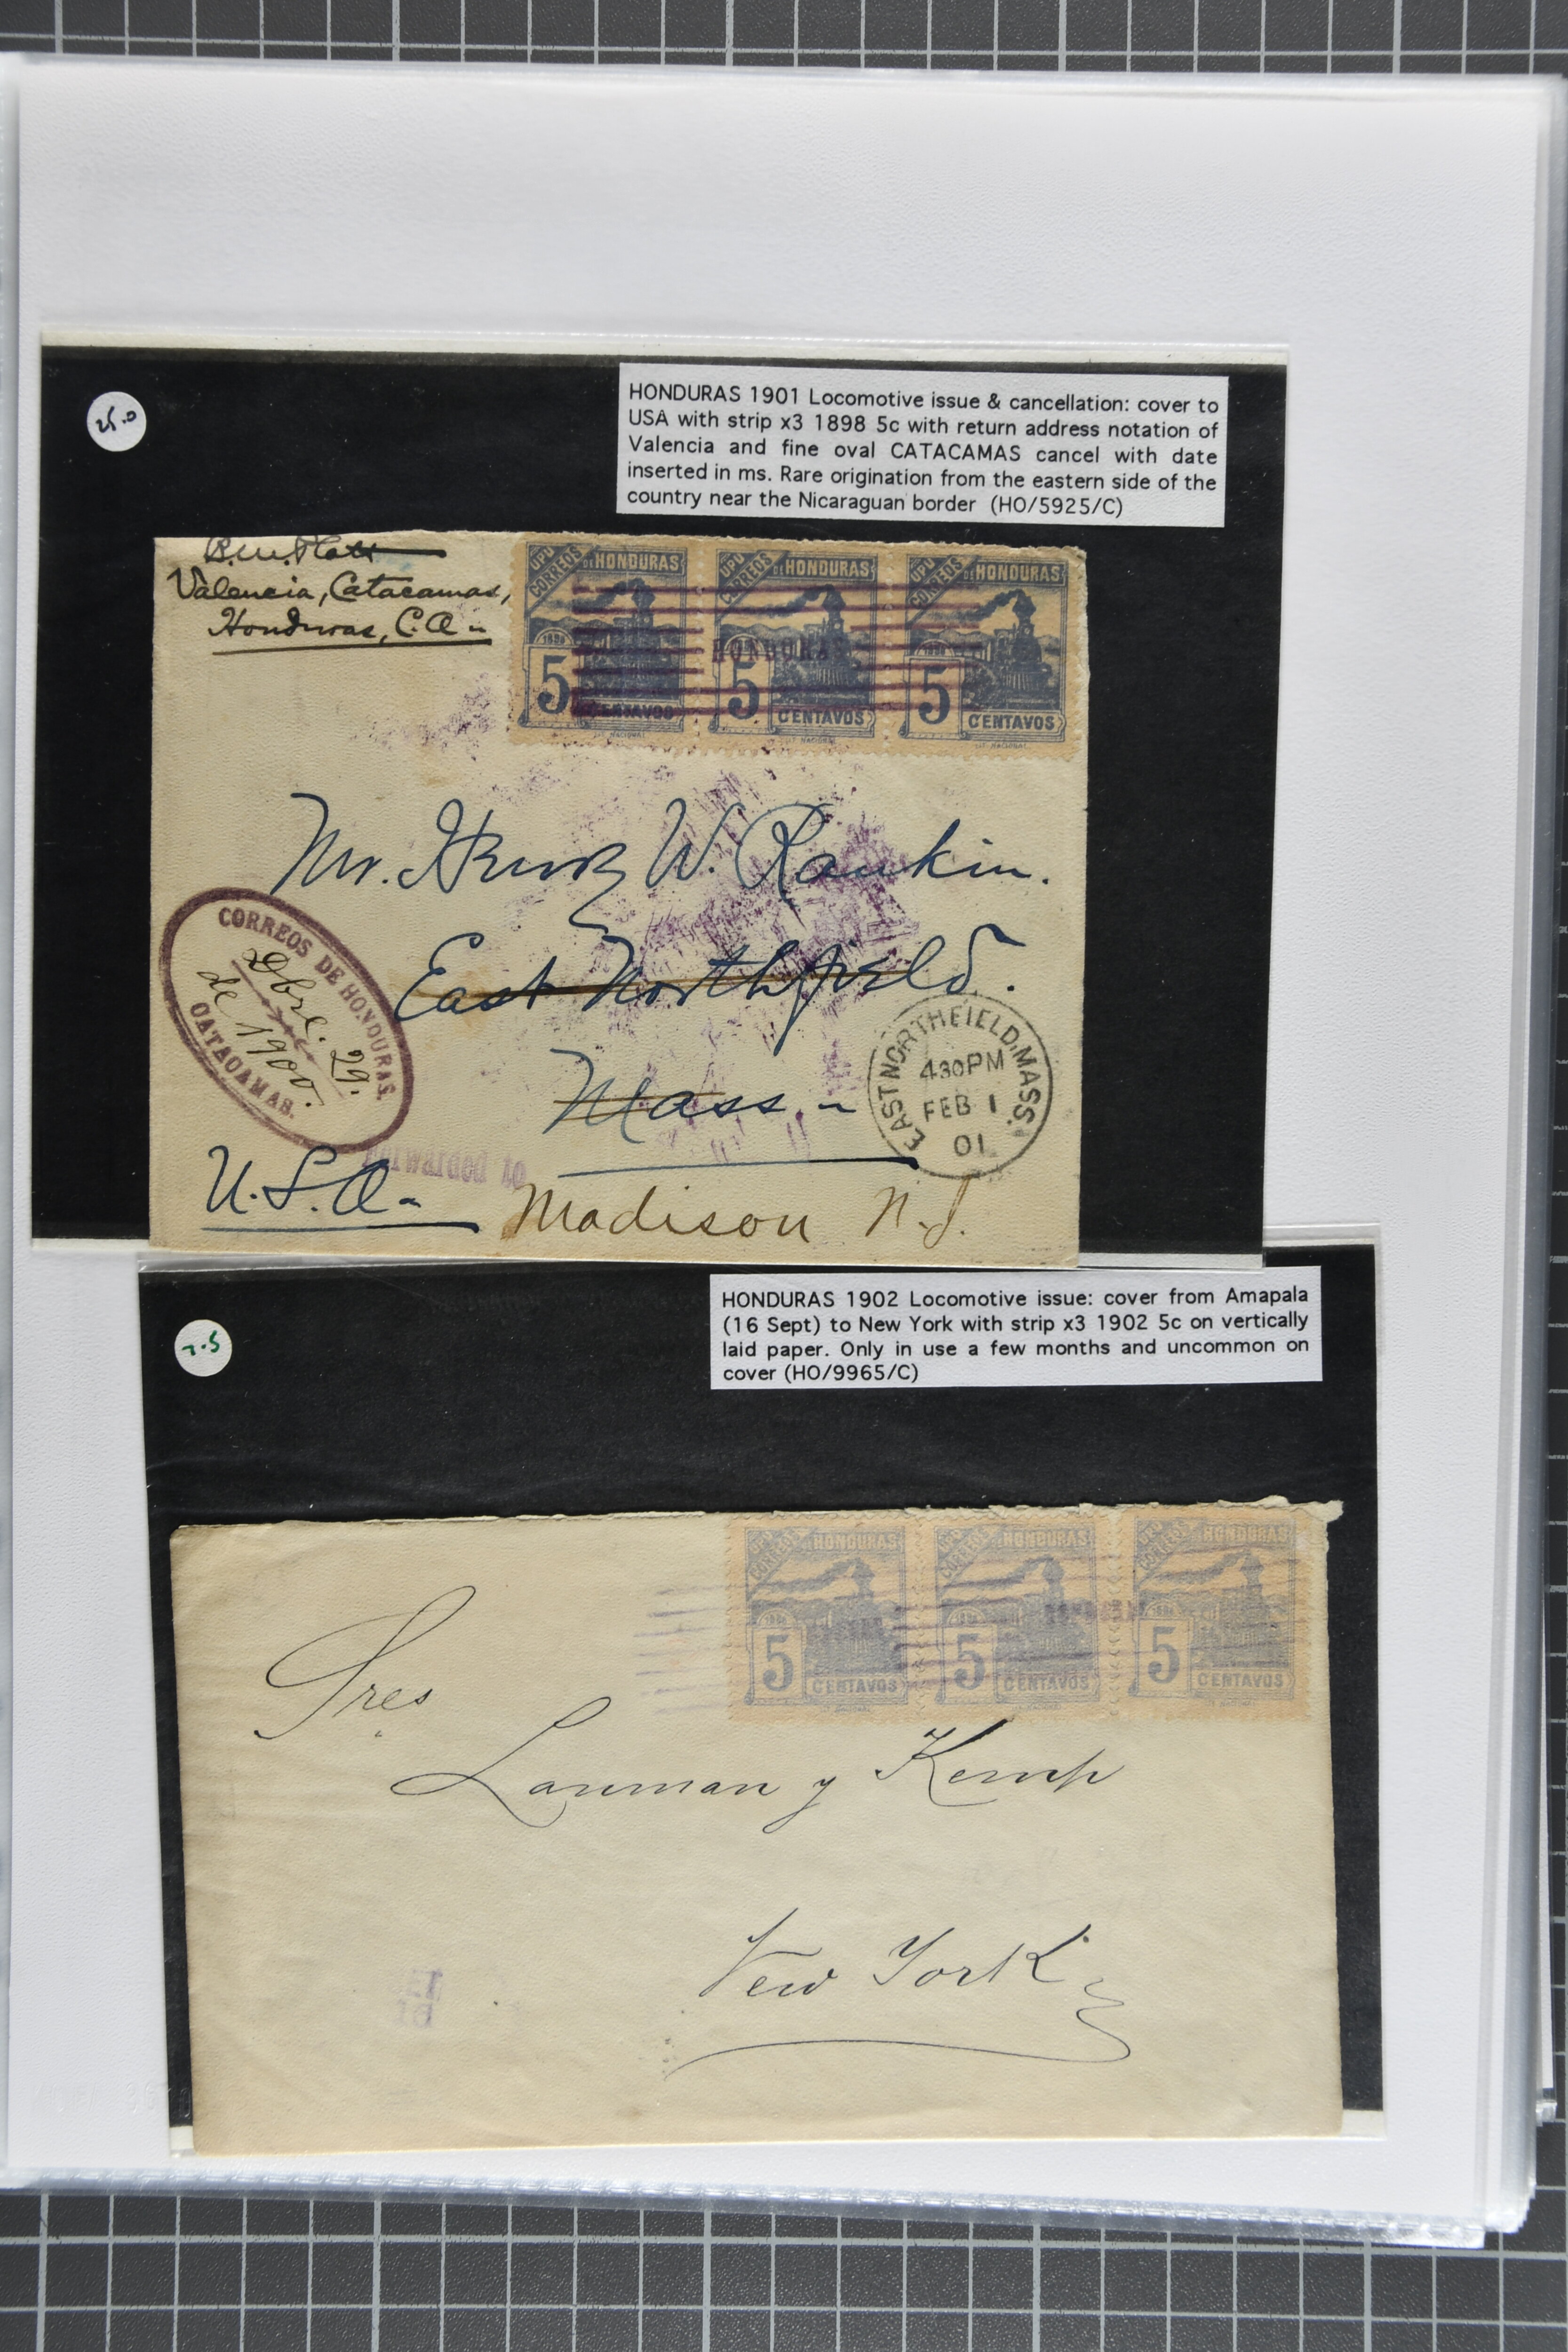 25.0
HONDURAS 1901 Locomotive issue & cancellation: cover to
USA with strip x3 1898 5c with return address notation of
Valencia and fine oval CATACAMAS cancel with date
inserted in ms. Rare origination from the eastern side of the
country near the Nicaraguan border (HO/5925/C)
Valencia, Catacamas,
Honduras, C.A.
UPU CORREOS DE HONDURAS
1898
5 CENTAVOS
LIT. NACIONAL
UPU CORREOS DE HONDURAS
5 CENTAVOS
LIT. NACIONAL
UPU CORREOS DE HONDURAS
5 CENTAVOS
LIT. NACIONAL
HONDURAS
Mr. Henry W. Rankin.
East Northfield.
Mass.
U.S.A.
CORREOS DE HONDURAS.
Dbre. 29.
de 1900.
CATACAMAS.
EAST NORTHFIELD, MASS.
430PM
FEB 1
01
Forwarded to
Madison N.J.
7.5
HONDURAS 1902 Locomotive issue: cover from Amapala
(16 Sept) to New York with strip x3 1902 5c on vertically
laid paper. Only in use a few months and uncommon on
cover (HO/9965/C)
UPU CORREOS DE HONDURAS
1898
5 CENTAVOS
UPU CORREOS DE HONDURAS
1898
5 CENTAVOS
UPU CORREOS DE HONDURAS
1898
5 CENTAVOS
Sres
Lanman y Kemp
New York